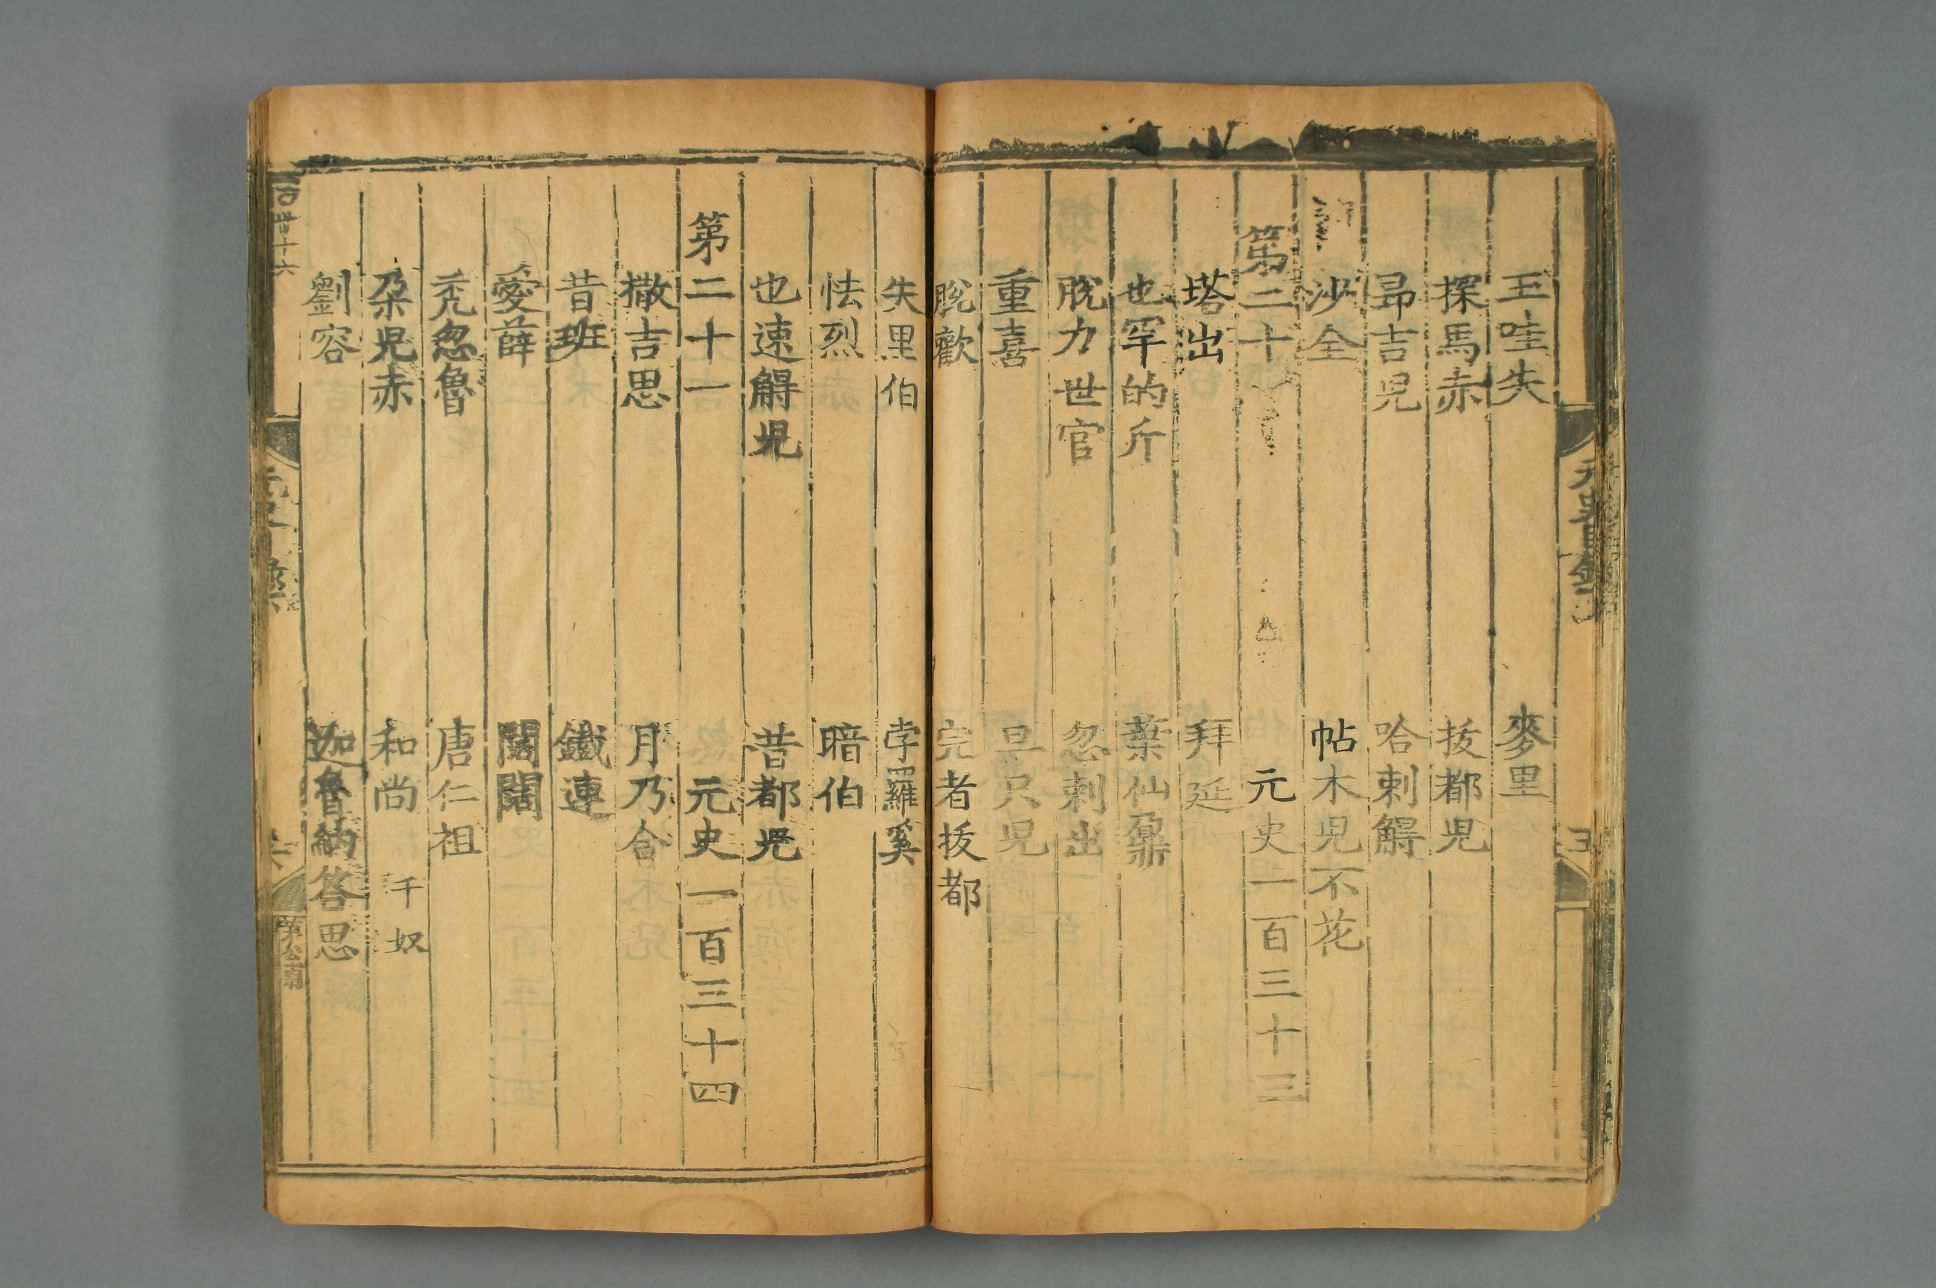 玉哇失 麥里
探馬赤 拔都児
昂吉児 哈剌䚟
沙全 帖木児不花
第二十 元史一百三十三
塔出 拜延
也罕的斤 葉仙鼐
脫力世官 忽剌出
重喜 旦只児
脫歡 完者拔都
失里伯 孛羅奚
怯烈 暗伯
也速䚟児 昔都児
第二十一 元史一百三十四
撒吉思 月乃合
昔班 鐵連
愛薛 闊闊
禿忽魯 唐仁祖
朶児赤 和尚 千奴
劉容 迦魯納答思
元史目錄下
五